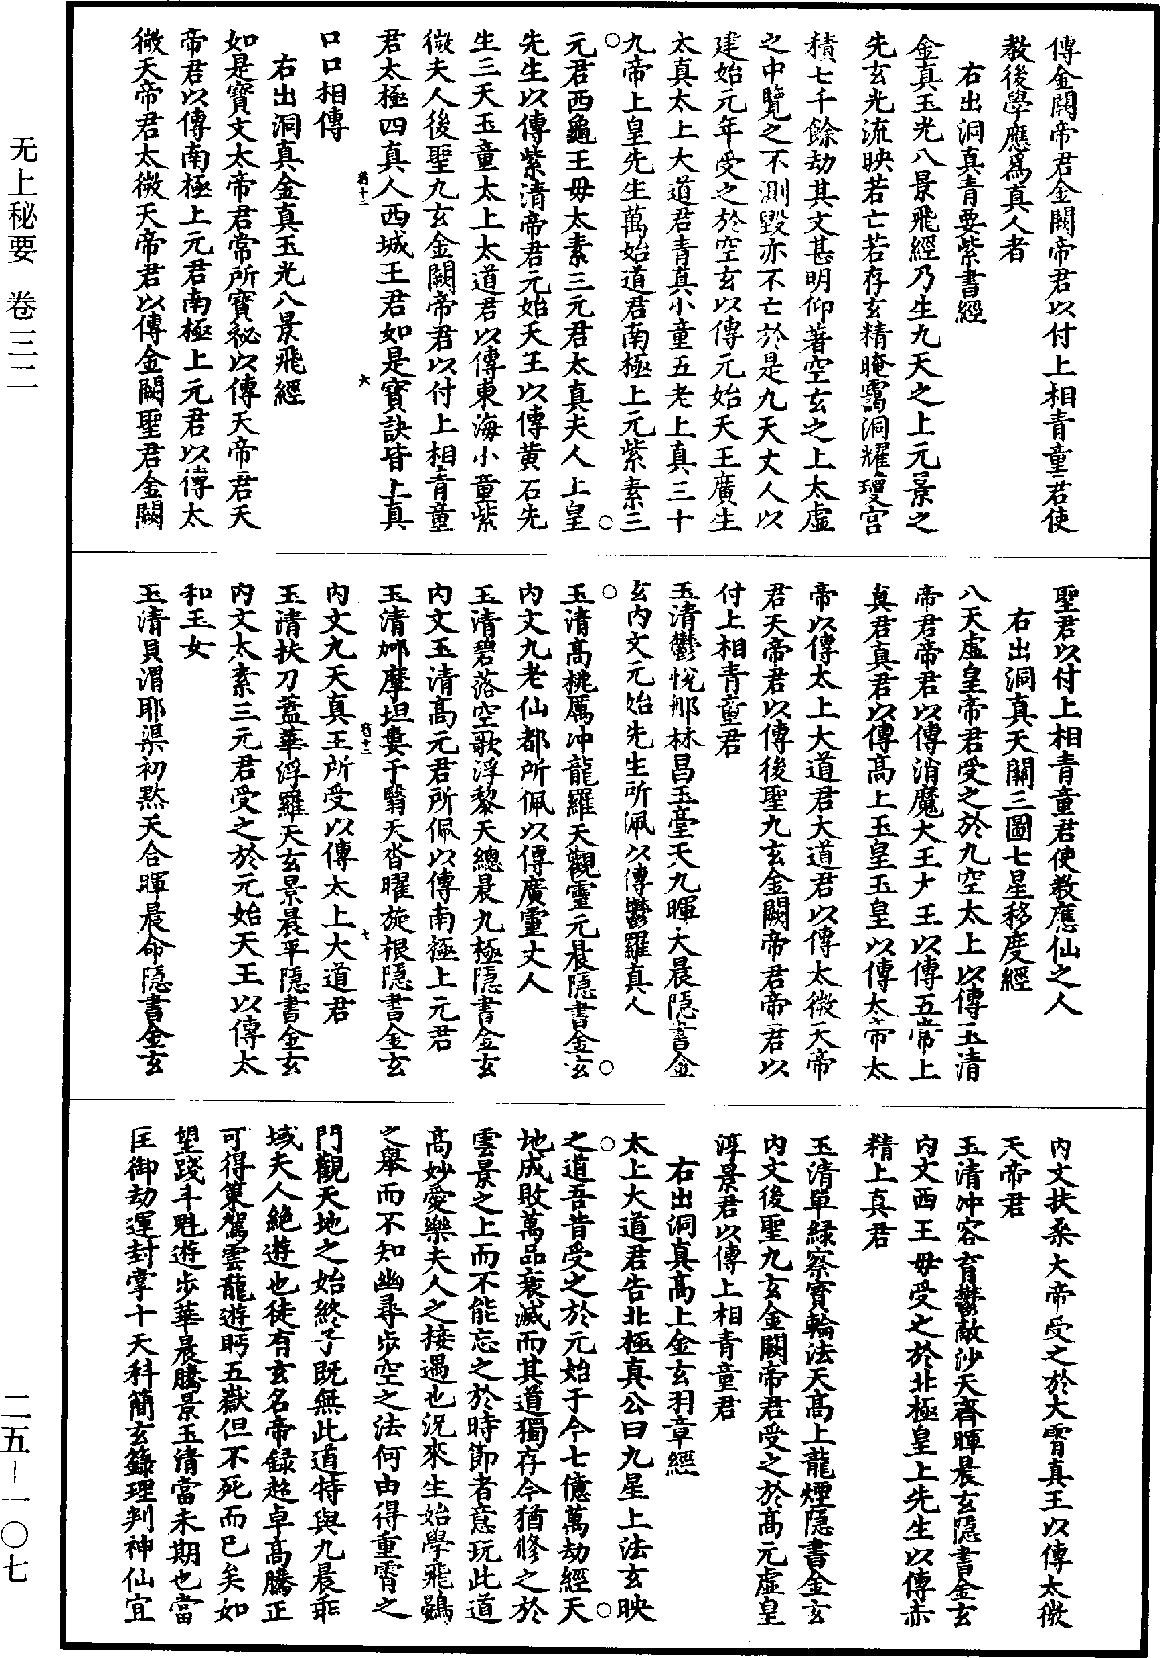 傳金闕帝君金闕帝君以付上相青童君使
教後學應爲真人者
右出洞真青要紫書經
金真玉光八景飛經乃生九天之上元景之
先玄光流映若亡若存玄精晻靄洞耀瓊宮
積七千餘劫其文甚明仰著空玄之上太虛
之中覽之不測毀亦不亡於是九天丈人以
建始元年受之於空玄以傳元始天王廣生
太真太上大道君青真小童五老上真三十
九帝上皇先生萬始道君南極上元紫素三
元君西龜王母太素三元君太真夫人上皇
先生以傳紫清帝君元始天王以傳黃石先
生三天玉童太上大道君以傳東海小童紫
微夫人後聖九玄金闕帝君以付上相青童
君太極四真人西城王君如是寶訣皆上真
口口相傳
右出洞真金真玉光八景飛經
如是寶文太帝君常所寶祕以傳天帝君天
帝君以傳南極上元君南極上元君以傳太
微天帝君太微天帝君以傳金闕聖君金闕
聖君以付上相青童君使教應仙之人
右出洞真天關三圖七星移度經
八天虛皇帝君受之於九空太上以傳玉清
帝君帝君以傳消魔大王大王以傳五帝上
真君真君以傳高上玉皇玉皇以傳太帝太
帝以傳太上大道君大道君以傳太微天帝
君天帝君以傳後聖九玄金闕帝君帝君以
付上相青童君
玉清鬱悅那林昌玉臺天九暉大晨隱書金
玄內文元始先生所佩以傳鬱羅真人
玉清高桃厲沖龍羅天觀靈元晨隱書金玄
內文九老仙都所佩以傳廣靈丈人
玉清碧落空歌浮黎天總晨九極隱書金玄
內文玉清高元君所佩以傳南極上元君
玉清娜摩坦婁于翳天沓曜旋根隱書金玄
內文九天真王所受以傳太上大道君
玉清扶刀蓋華浮羅天玄景晨平隱書金玄
內文太素三元君受之於元始天王以傳太
和玉女
玉清具渭耶渠初默天合暉晨命隱書金玄
內文扶桑大帝受之於大霄真王以傳太微
天帝君
玉清沖容育鬱敵沙天齊暉晨玄隱書金玄
內文西王母受之於北極皇上先生以傳赤
精上真君
玉清單綠察寶輪法天高上龍煙隱書金玄
內文後聖九玄金闕帝君受之於高元虛皇
淳景君以傳上相青童君
右出洞真高上金玄羽章經
太上大道君告北極真公曰九星上法玄映
之道吾昔受之於元始于今七億萬劫經天
地成敗萬品衰滅而其道獨存今猶修之於
雲景之上而不能忘之於時節者意玩此道
高妙愛樂夫人之接遇也況來生始學飛鷄
之舉而不知幽尋步空之法何由得重霄之
門觀天地之始終子既無此道特與九晨乖
域夫人絶遊也徒有玄名帝録超卓高騰正
可得策駕雲龍遊眄五嶽但不死而已矣如
望踐斗魁遊步華晨騰景玉清當未期也當
匡御劫運封掌十天科簡玄籙理判神仙宜
无上秘要　卷三二
二五－一〇七